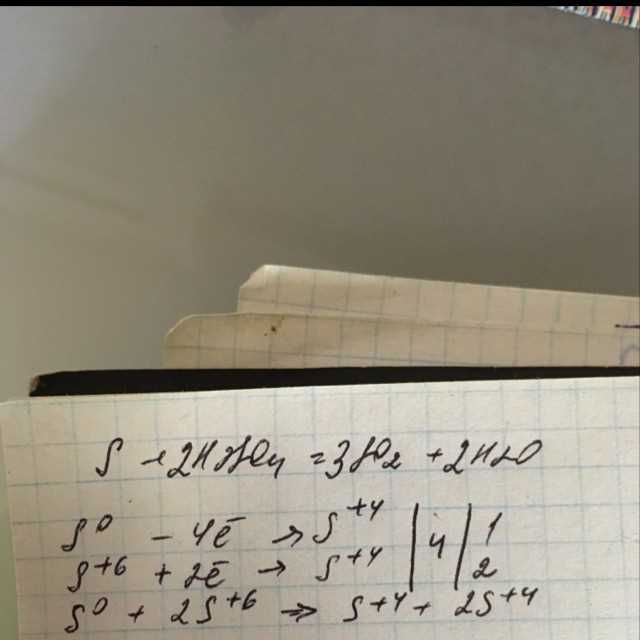 S + 2H2SO4 = 3SO2 + 2H2O
S⁰ - 4ē → S⁺⁴ | 4 | 1
S⁺⁶ + 2ē → S⁺⁴ | | 2
S⁰ + 2S⁺⁶ ⇒ S⁺⁴ + 2S⁺⁴